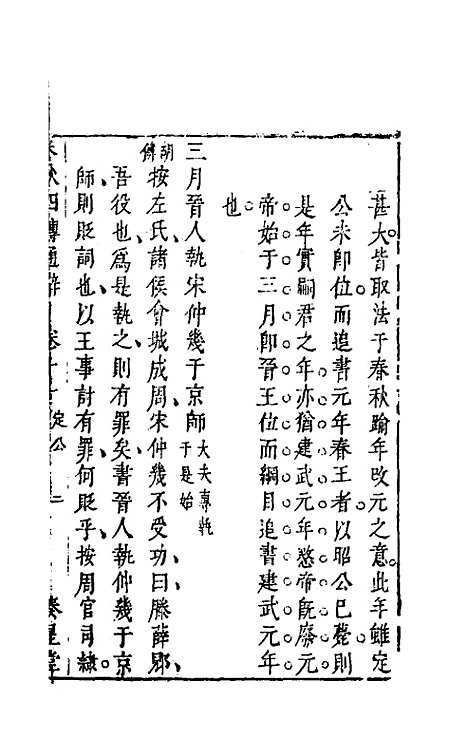 甚大皆取法于春秋踰年改元之意此年雖定
公未即位而追書元年春王者以昭公已薨則
是年實嗣君之年亦猶建武元年愍帝既廢元
帝始于三月即晉王位而綱目追書建武元年
也
三月晉人執宋仲幾于京師大夫專執于是始
胡傳按左氏諸侯會城成周宋仲幾不受功曰滕薛郳
吾役也爲是執之則有罪矣書晉人執仲幾于京
師則貶詞也以王事討有罪何貶乎按周官司隷
春秋四傳通辭 卷十一定公